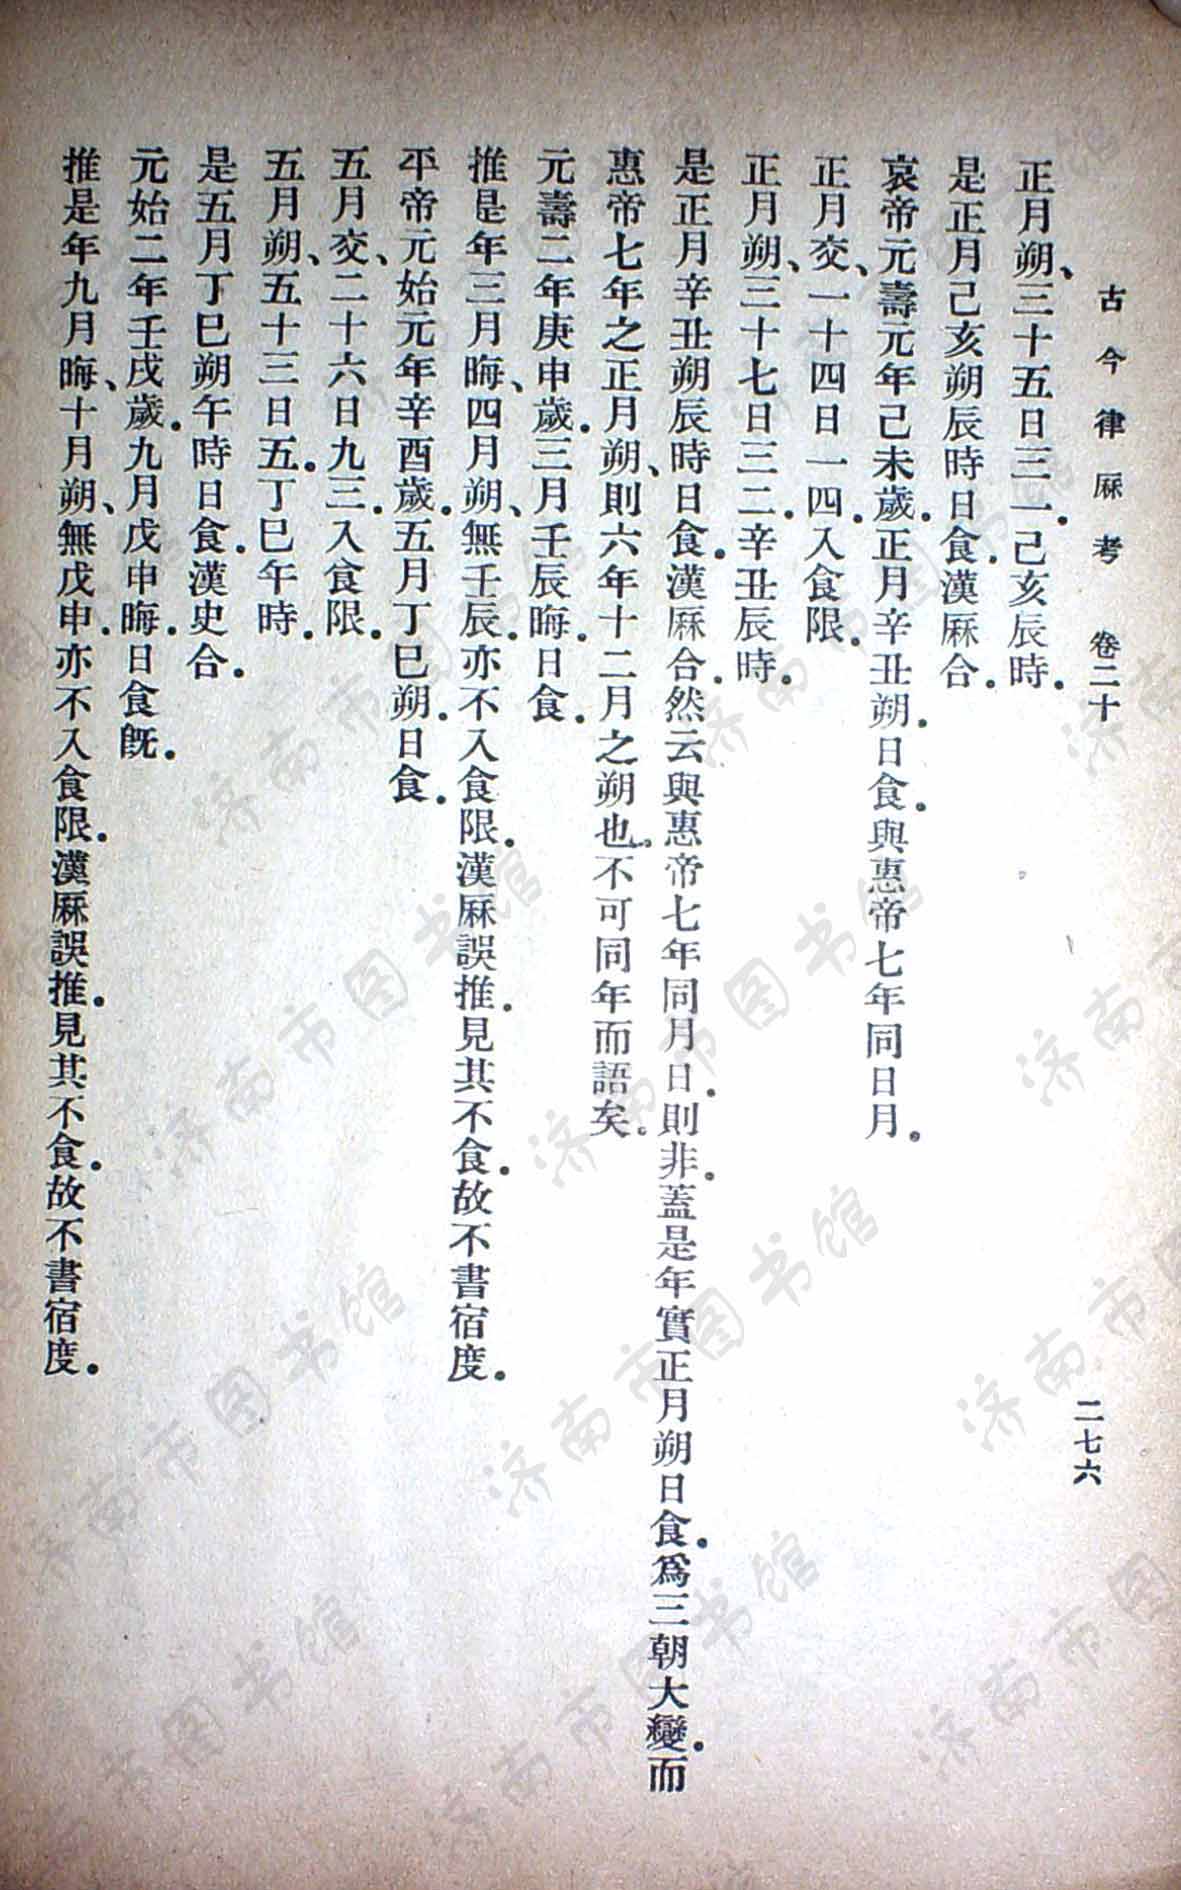 古今律厤考 卷二十 二七六
正月朔、三十五日三一.己亥辰時.
是正月己亥朔辰時日食.漢厤合.
哀帝元壽元年己未歲.正月辛丑朔.日食.與惠帝七年同日月.
正月交、一十四日一四.入食限.
正月朔、三十七日三二.辛丑辰時.
是正月辛丑朔辰時日食.漢厤合.然云與惠帝七年同月日.則非.蓋是年實正月朔日食.爲三朝大變.而
惠帝七年之正月朔、則六年十二月之朔也.不可同年而語矣.
元壽二年庚申歲.三月壬辰晦.日食.
推是年三月晦、四月朔、無壬辰.亦不入食限.漢厤誤推.見其不食.故不書宿度.
平帝元始元年辛酉歲.五月丁巳朔.日食.
五月交、二十六日九三.入食限.
五月朔、五十三日五.丁巳午時.
是五月丁巳朔午時日食.漢史合.
元始二年壬戌歲.九月戊申晦.日食既.
推是年九月晦、十月朔、無戊申.亦不入食限.漢厤誤推.見其不食.故不書宿度.
济南市图书馆